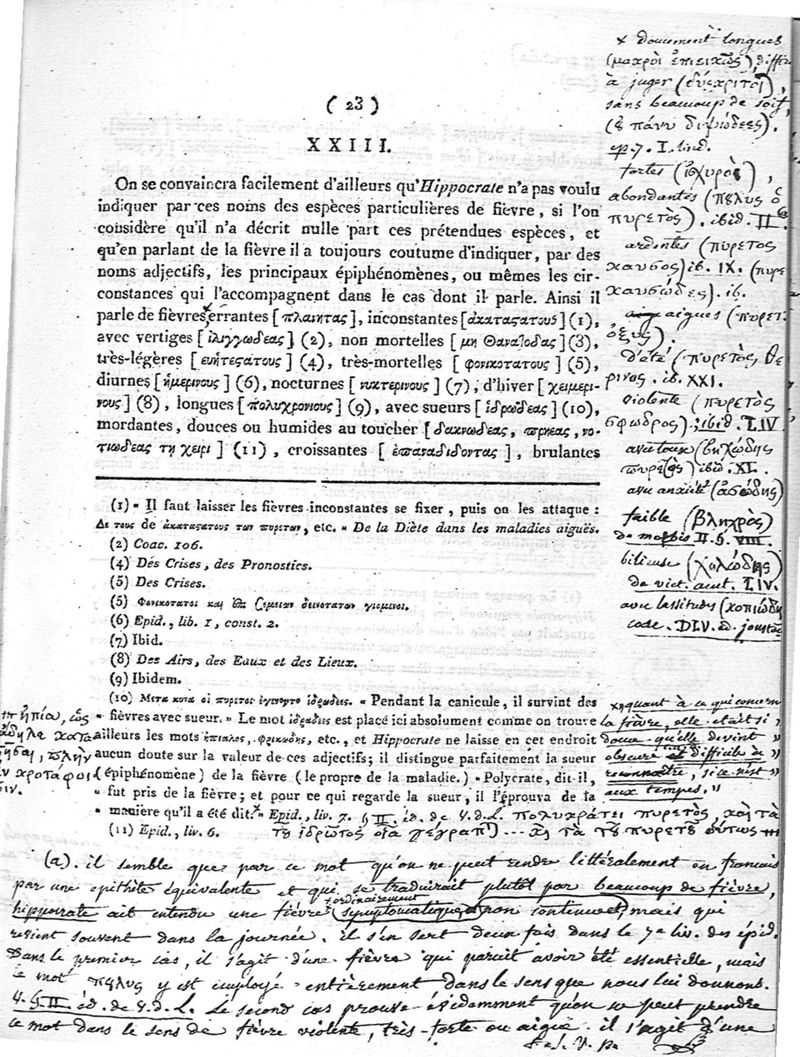 ( 23 )
XXIII.
On se convaincra facilement d'ailleurs qu'Hippocrate n'a pas voulu
indiquer par ces noms des espèces particulières de fièvre, si l'on
considère qu'il n'a décrit nulle part ces prétendues espèces, et
qu'en parlant de la fièvre il a toujours coutume d'indiquer, par des
noms adjectifs, les principaux épiphénomènes, ou mêmes les cir-
constances qui l'accompagnent dans le cas dont il parle. Ainsi il
parle de fièvres errantes [πλανητας], inconstantes [ακαταϛατους] (1),
avec vertiges [ιλιγγωδεας] (2), non mortelles [μη θαναΐοδας] (3),
très-légères [ευητεϛατους] (4), très-mortelles [φονικοτατους] (5),
diurnes [ημερινους] (6), nocturnes [νυκτερινους] (7), d'hiver [χειμερι-
νους] (8), longues [πολυχρονιους] (9), avec sueurs [ιδρωδεας] (10),
mordantes, douces ou humides au toucher [δακνωδεας, πρηεας, νο-
τιωδεας τη χειρι] (11), croissantes [επαναδιδοντας], brulantes
(1) « Il faut laisser les fièvres inconstantes se fixer, puis on les attaque :
Δει τους δε ακαταϛατους των πυρετων, etc. » De la Diète dans les maladies aiguës.
(2) Coac. 106.
(4) Des Crises, des Pronostics.
(5) Des Crises.
(5) Φονικοτατοι και
(6) Epid., lib. 1, const. 2.
(7) Ibid.
(8) Des Airs, des Eaux et des Lieux.
(9) Ibidem.
(10) Μετα κυνα οι πυρετοι εγενοντο ιδρωδεις. « Pendant la canicule, il survint des
» fièvres avec sueur. » Le mot ιδρωδεις est placé ici absolument comme on trouve
ailleurs les mots ηπιαλος, φρικωδης, etc., et Hippocrate ne laisse en cet endroit
aucun doute sur la valeur de ces adjectifs; il distingue parfaitement la sueur
(épiphénomène) de la fièvre (le propre de la maladie.) « Polycrate, dit-il,
» fut pris de la fièvre; et pour ce qui regarde la sueur, il l'éprouva de la
» manière qu'il a été dit. » Epid., liv. 7. § II. éd. de V.d.L. πολυκράτει πυρετὸς, καὶ τὰ
(11) Epid., liv. 6. τοῦ ἱδρῶτος οἷα γέγραπται ... καὶ τὰ τοῦ πυρετοῦ οὕτως
x document longues
(μακροὶ ἐπιεικῶς),
à juger (εὔκριτοι),
sans beaucoup de soif,
(οὐ πάνυ διψώδεες).
ep. 7. I. lind.
fortes (ἰσχυρὸς),
abondantes (πολὺς ὁ
πυρετὸς). ibid. II
ardentes (πυρετὸς
καῦσος) ib. IX. (πυρε
καυσώδες). ib.
aigues (πυρετ.
ὀξὺς).
d'été (πυρετὸς θε
ρινος. ib. XXI.
violente (πυρετὸς
σφωδρος). ibid. I, IV
avec toux (βηχώδης
πυρετὸς) ibid. XI.
avec anxiété (ἀσώδης)
faible (βληχρὸς)
de morbis II. §. VIII.
bilieuse (χολώδης)
de vict. acut. I, IV.
avec lassitudes (κοπιώδ
coac. DLV. éd. joustac
» quant à ce qui concern
la fièvre, elle était si »
douce qu'elle devint »
obscure et difficile à »
reconnoître, si ce n'est »
aux tempes. »
ηπία, ὡς
ἄδηλα κατα
πλὴν
κροτάφοι
σιν.
(a). il semble que par ce mot qu'on ne peut rendre littéralement en francais
par une epithète équivalente et qui se traduirait plutôt par beaucoup de fièvre,
ordinairement
hippocrate ait entendu une fièvre symptomatique, non continue, mais qui
revient souvent dans la journée. il s'en sert deux fois dans le 7e liv. des épid.
Dans le premier cas, il s'agit d'une fièvre qui paroit avoir été essentielle, mais
ce mot πολυς y est employé entièrement dans le sens que nous lui donnons.
V. § II. éd. de V.d.L. Le second cas prouve évidemment qu'on ne peut prendre
ce mot dans le sens de fièvre violente, très-forte ou aigüe. il s'agit d'une